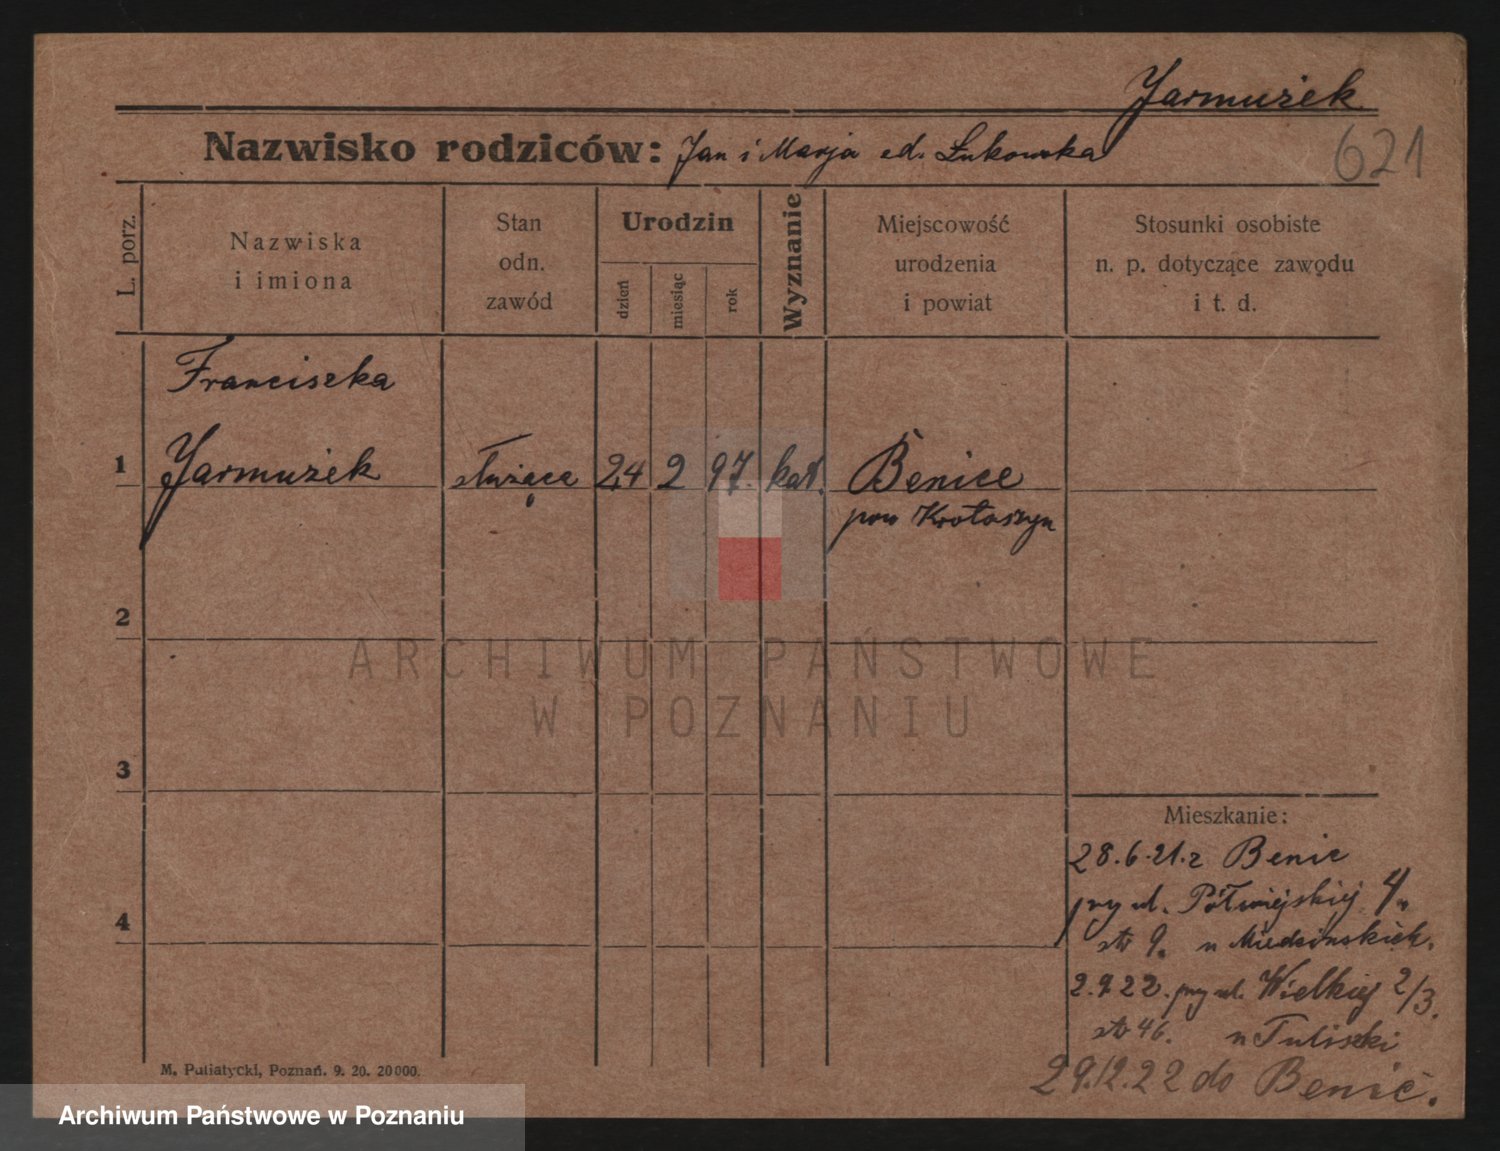 Jarmużek
Nazwisko rodziców: Jan i Marja Łukowska
621
L. porz.
Nazwiska
i imiona
Stan
odn.
zawód
Urodzin
dzień
miesiąc
rok
Wyznanie
Miejscowość
urodzenia
i powiat
Stosunki osobiste
n. p. dotyczące zawodu
i t. d.
Franciszka
1 Jarmużek służąca 24 2 97. kat. Benice
pow Krotoszyn
2
3
4
Mieszkanie:
28.6.21. z Benic
przy ul. Półwiejskiej 4.
str 9. u
2.9.22. przy ul. Wielkiej 2/3.
str 46. u Tuliszki
29.12.22 do Benic.
M. Putiatycki, Poznań. 9. 20. 20000.
ARCHIWUM PAŃSTWOWE
W POZNANIU
Archiwum Państwowe w Poznaniu